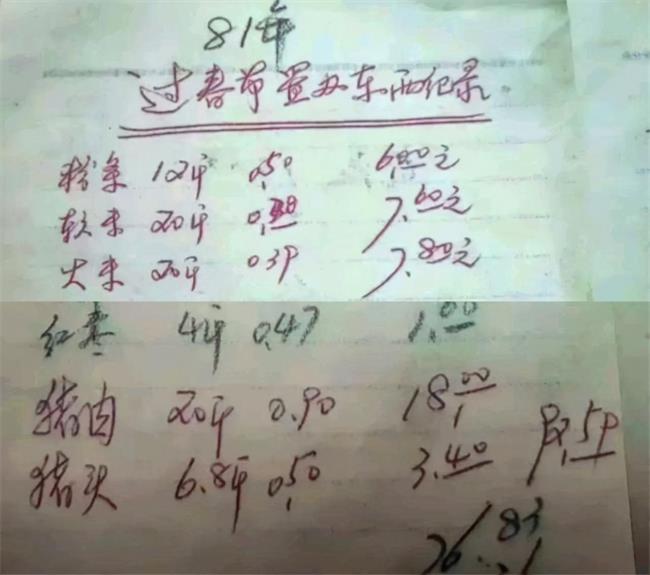 81年
过春节置办东西纪录
粉条 12斤 0.50 6.00元
软米 20斤 7.60元
大米 20斤 0.39 7.80元
红枣 4斤 0.47
猪肉 20斤 0.90 18.00
猪头 6.8斤 0.50 3.40
26.83